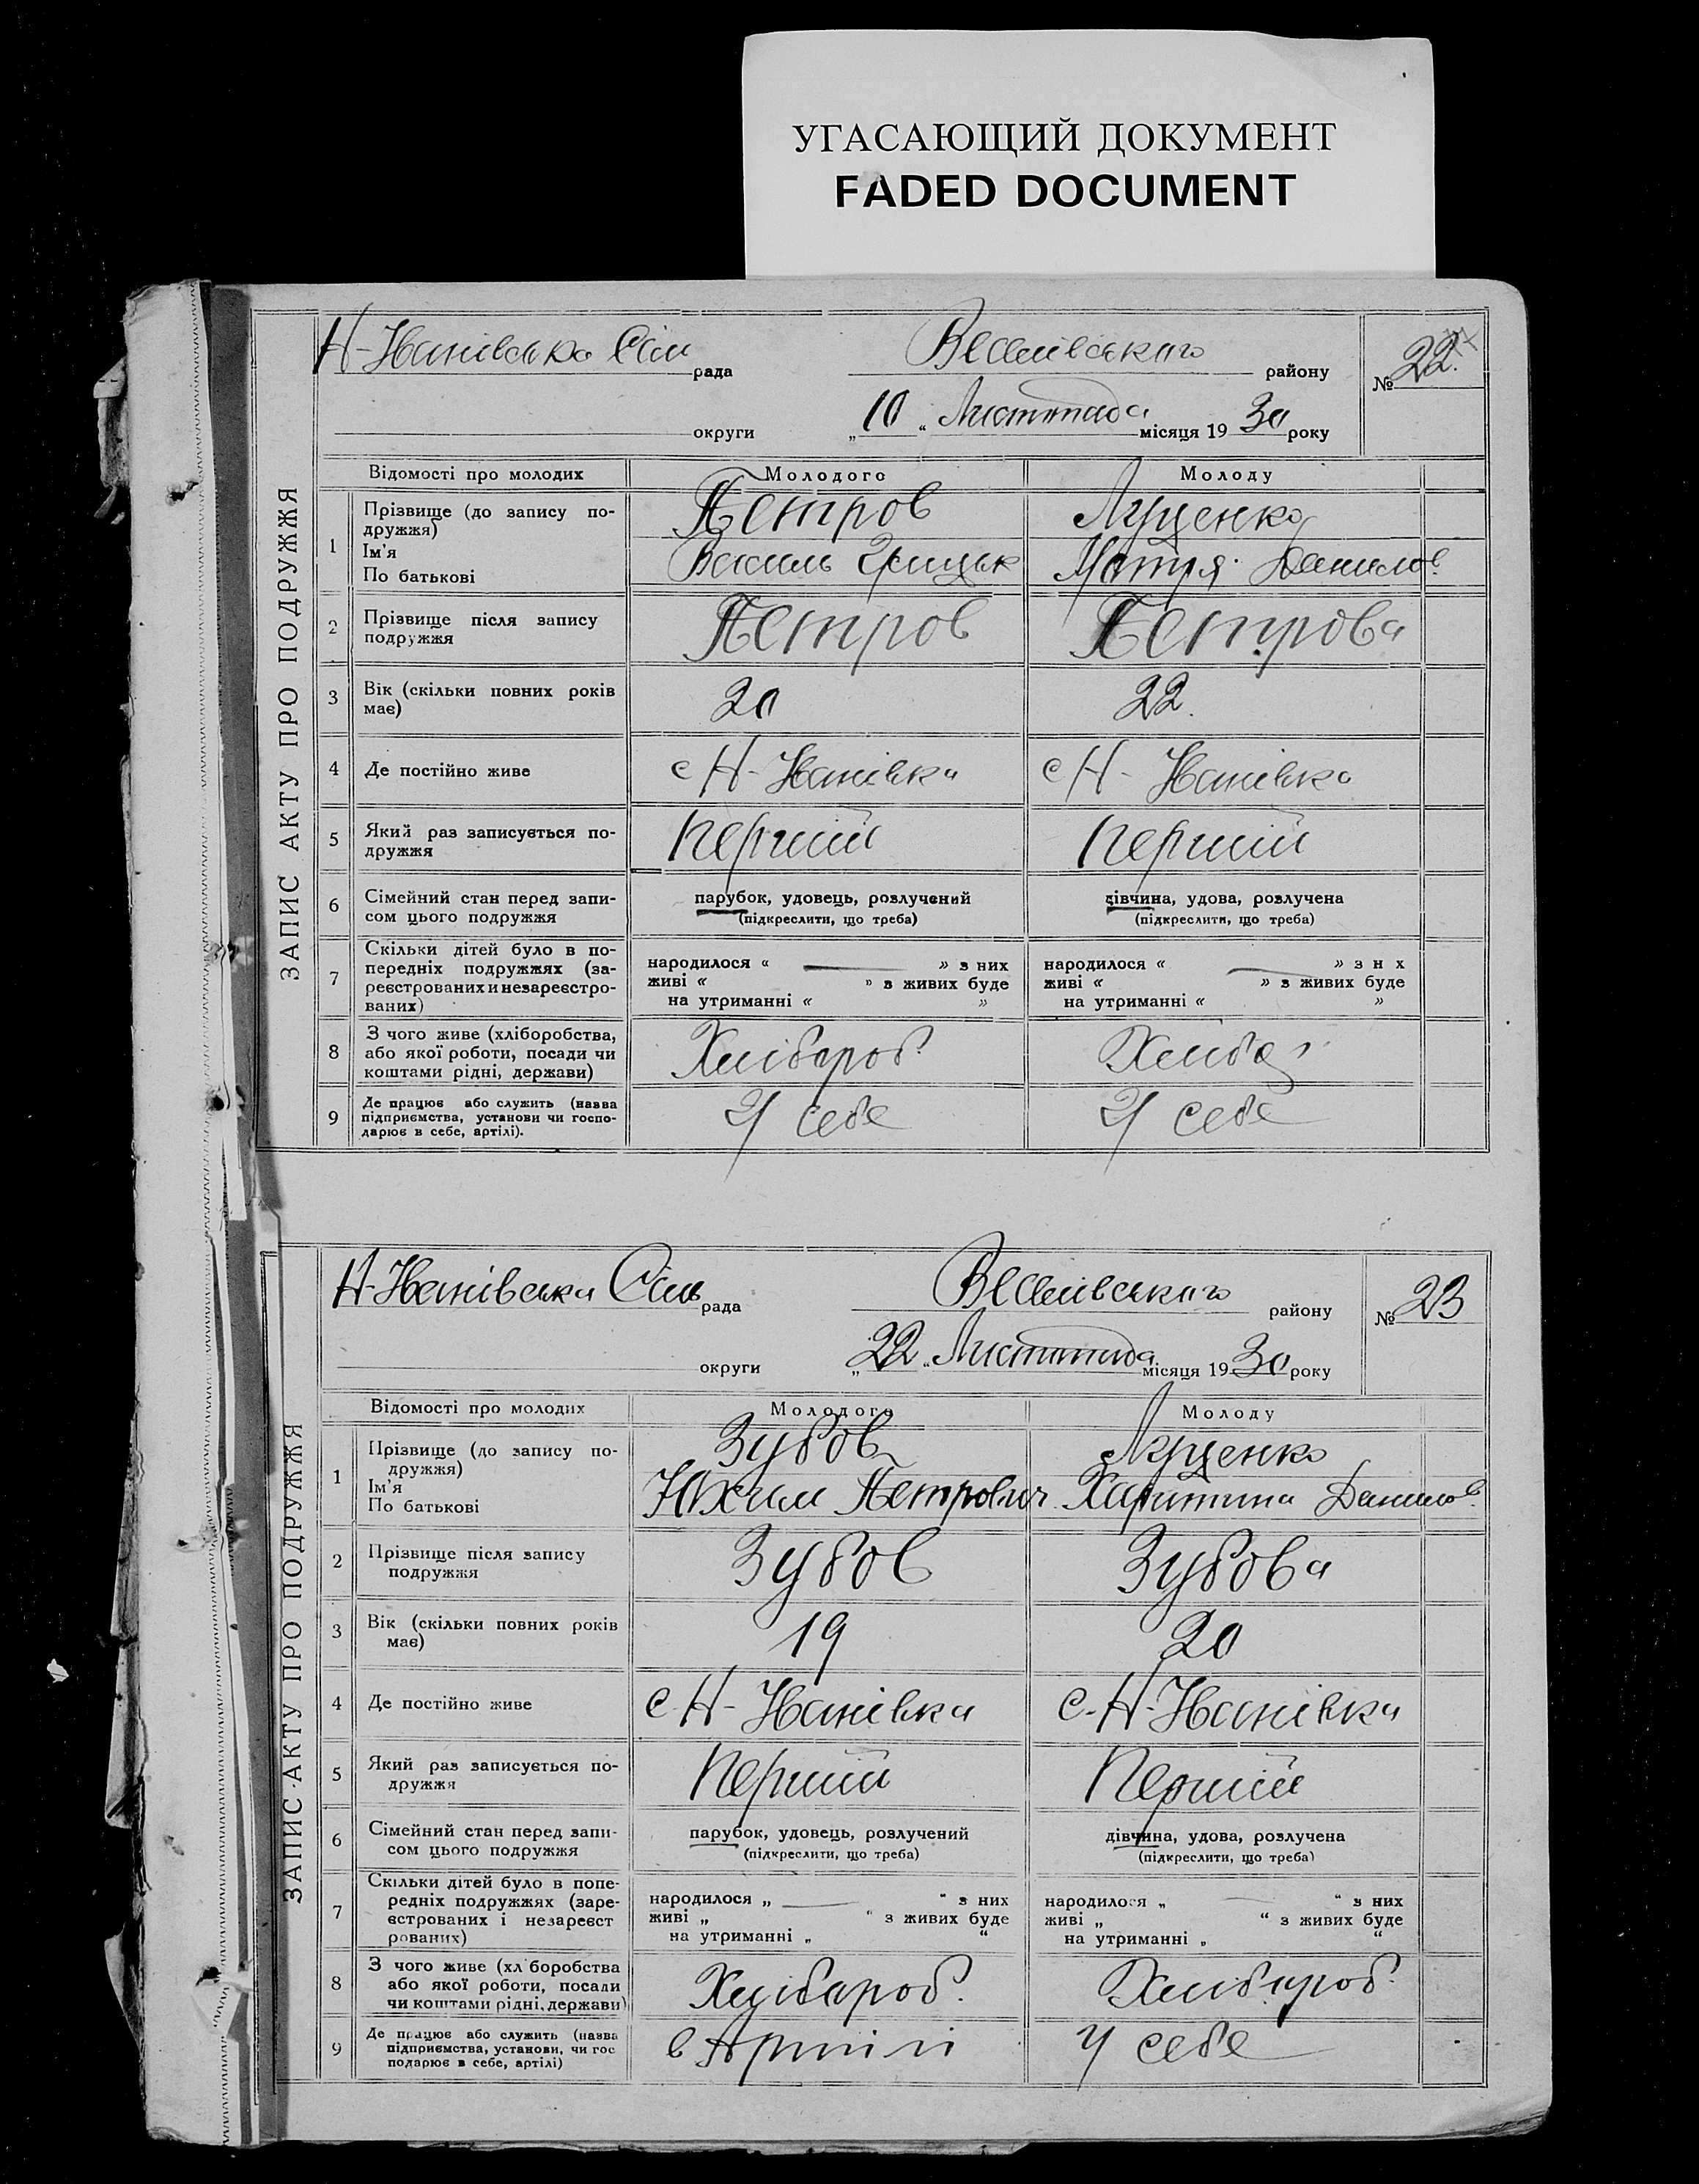 УГАСАЮЩИЙ ДОКУМЕНТ
FADED DOCUMENT
ЗАПИС АКТУ ПРО ПОДРУЖЖЯ
Н-Іванівська Сіль рада Веселівського району № 22
округи „10“ Листопада місяця 1930 року
Відомості про молодих Молодого Молоду
1 Прізвище (до запису по-
дружжя) Петров Луценко
Ім'я
По батькові Василь Грицьк Мотря Данилов.
2 Прізвище після запису
подружжя Петров Петрова
3 Вік (скільки повних років
має) 20 22.
4 Де постійно живе с Н-Іванівка с Н-Іванівка
5 Який раз записується по-
дружжя Перший Перший
6 Сімейний стан перед запи-
сом цього подружжя
парубок, удовець, розлучений дівчина, удова, розлучена
(підкреслити, що треба) (підкреслити, що треба)
7 Скільки дітей було в по-
передніх подружжях (за-
реєстрованих и незареєстро-
ваних)
народилося « » з них народилося « » з н х
живі « » з живих буде живі « » з живих буде
на утриманні « » на утриманні « »
8 З чого живе (хліборобства,
або якої роботи, посади чи
коштами рідні, держави) Хлібороб.
9 Де працює або служить (назва
підприємства, установи чи госпо-
дарює в себе, артілі). У себе У себе
ЗАПИС АКТУ ПРО ПОДРУЖЖЯ
Н-Іванівська Сіль рада Веселівського району № 23
округи „22“ Листопада місяця 1930 року
Відомості про молодих Молодого Молоду
1 Прізвище (до запису по-
дружжя) Зубов Луценко
Ім'я
По батькові Юхим Петрович Харитина Данилов.
2 Прізвище після запису
подружжя Зубов Зубова
3 Вік (скільки повних років
має) 19 20
4 Де постійно живе с Н-Іванівка с-Н-Іванівка
5 Який раз записується по-
дружжя Перший Перший
6 Сімейний стан перед запи-
сом цього подружжя
парубок, удовець, розлучений дівчина, удова, розлучена
(підкреслити, що треба) (підкреслити, що треба)
7 Скільки дітей було в попе-
редніх подружжях (заре-
єстрованих і незареєст
рованих)
народилося „ “ з них народилося „ “ з них
живі „ “ з живих буде живі „ “ з живих буде
на утриманні „ “ на утриманні „ “
8 З чого живе (хл боробства
або якої роботи, посади
чи коштами рідні, держави) Хлібароб. Хлібароб.
9 Де працює або служить (назва
підприємства, установи, чи гос
подарює в себе, артілі) в Артілі У себе